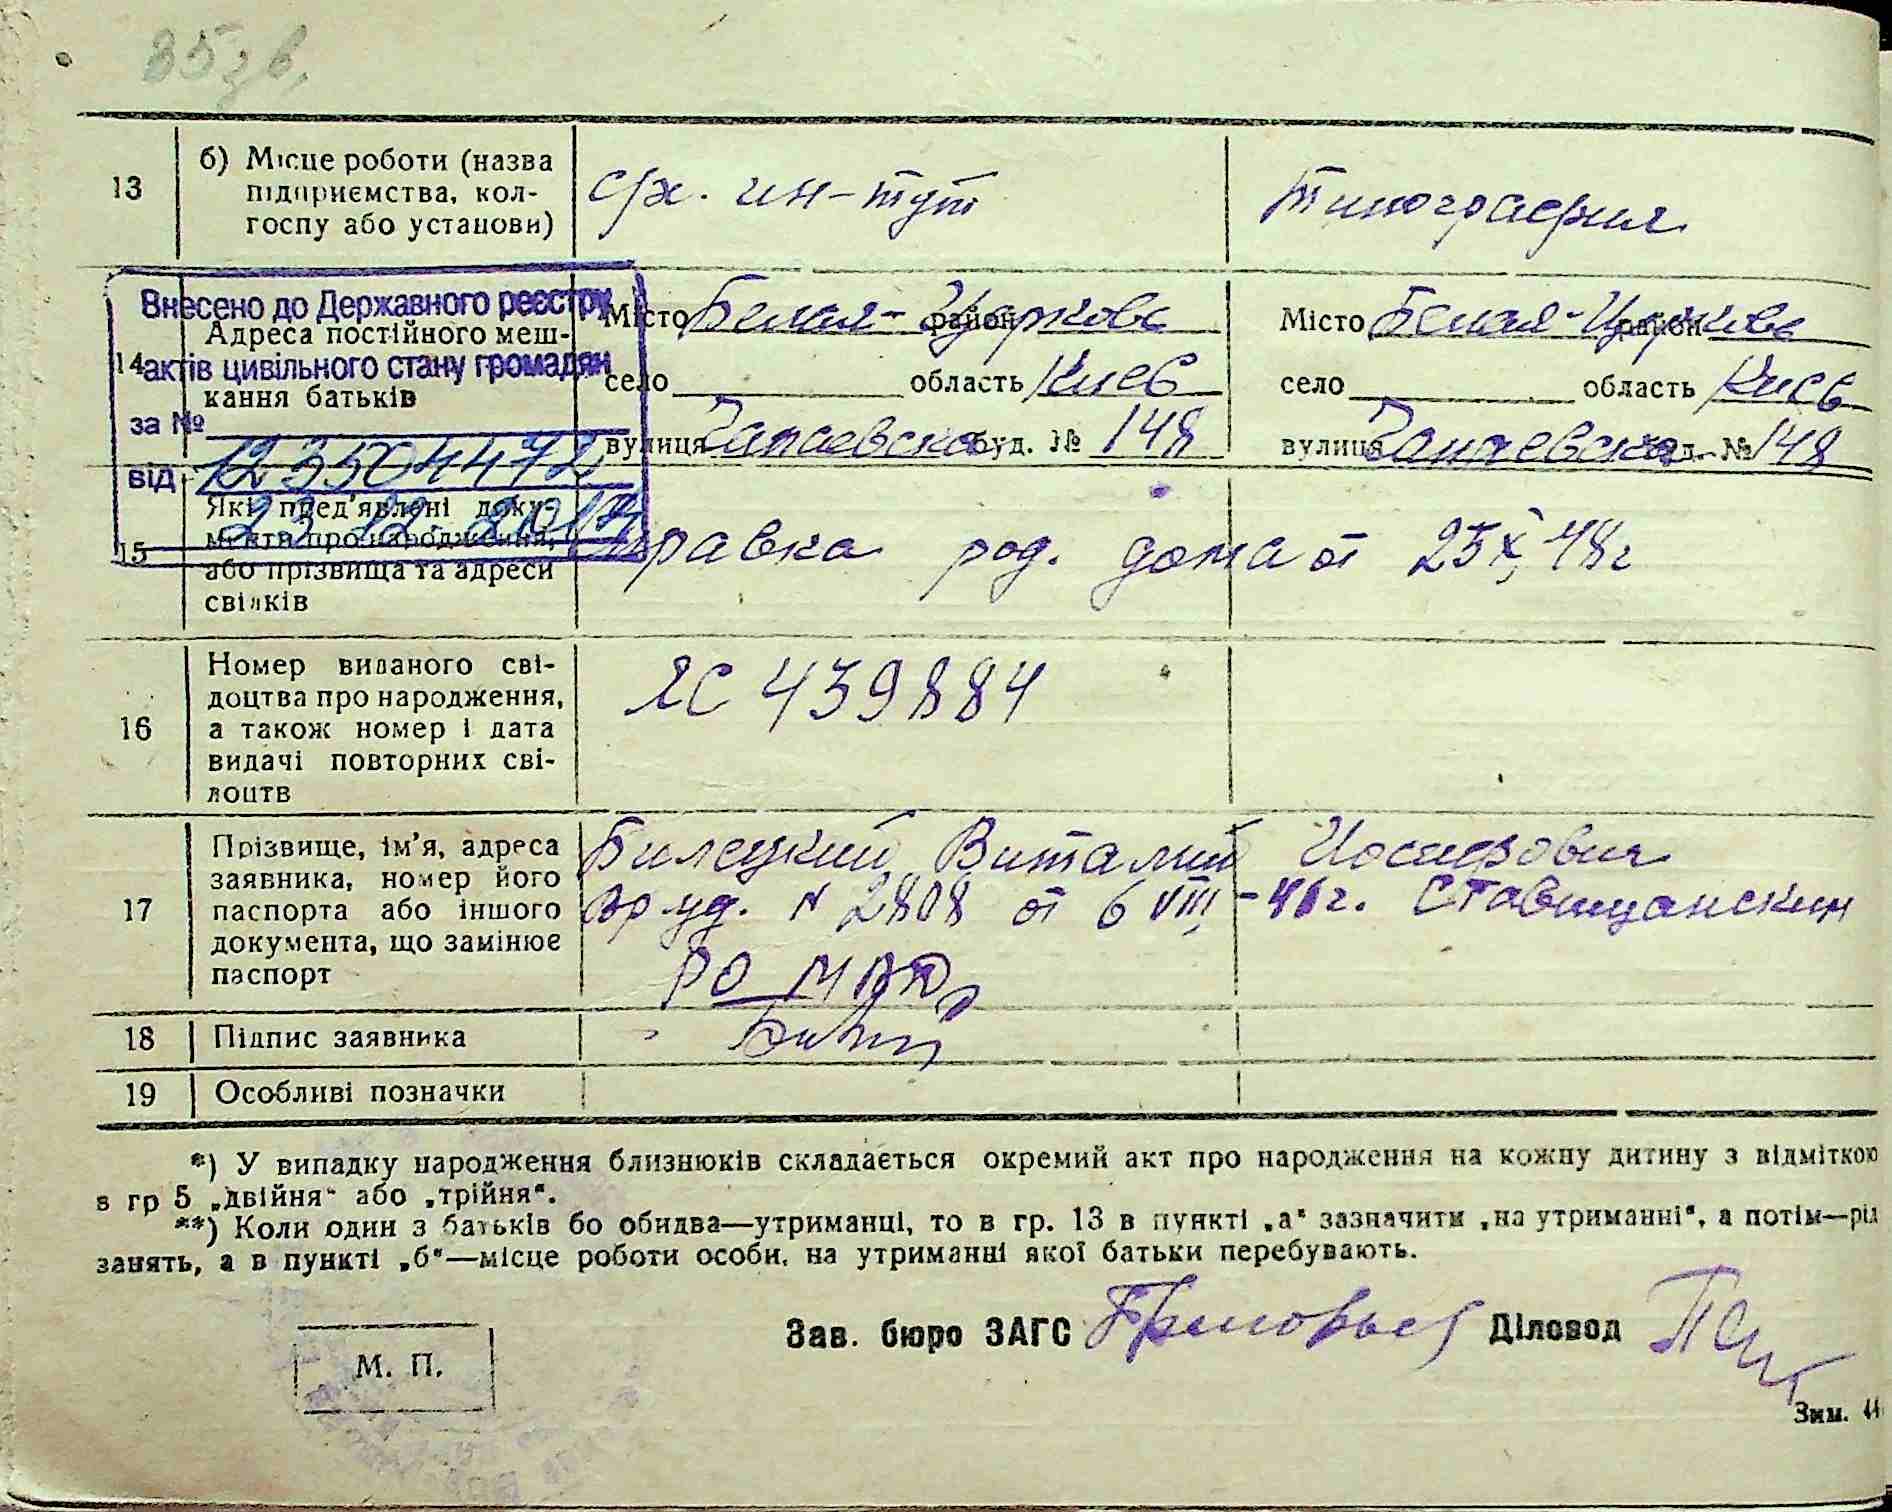 85зв.
13
б) Місце роботи (назва
підприємства, кол-
госпу або установи)
с/х. ин-тут
типография
Внесено до Державного реєстру
актів цивільного стану громадян
за №
123504472
від 23.12.2014
14
Адреса постійного меш-
кання батьків
Місто Белая-Церковь район
село область Киев
вулиця Чапаевская буд. № 148
Місто Белая-Церковь район
село область Киев
вулиця Чапаевская буд. № 148
15
Які пред'явлені доку-
менти про народження,
або прізвища та адреси
свідків
справка род. дома от 25 X 48 г
16
Номер виданого сві-
доцтва про народження,
а також номер і дата
видачі повторних сві-
доцтв
ЯС 439884
17
Прізвище, ім'я, адреса
заявника, номер його
паспорта або іншого
документа, що замінює
паспорт
Билецкий Виталий Иосифович
вр уд. N 2808 от 6 VIII-46 г. Ставищанским
РО МВД
18
Підпис заявника
19
Особливі позначки
*) У випадку народження близнюків складається окремий акт про народження на кожну дитину з відміткою
в гр 5 „двійня“ або „трійня“.
**) Коли один з батьків бо обидва—утриманці, то в гр. 13 в пункті „а“ зазначити „на утриманні“, а потім—рід
занять, а в пункті „б“—місце роботи особи, на утриманні якої батьки перебувають.
Зав. бюро ЗАГС Діловод
М. П.
Зим. 44